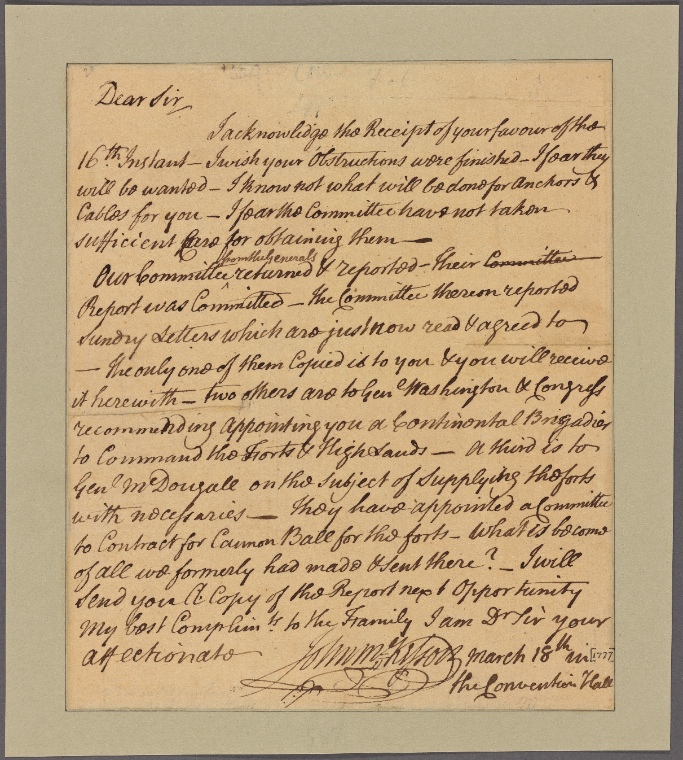 Dear Sir
I acknowlidge the Receipt of your favour of the
16th Instant – I wish your Obstructions were finished – I fear they
will be wanted – I know not what will be done for Anchors &
Cables for you – I fear the Committee have not taken
sufficient Care for obtaining them –
from the Generals
Our Committee returned & reported – Their Committee
Report was Committed – the Committee thereon reported
sundry Letters which are just now read & agreed to
– The only one of them Copied is to you & you will receive
it herewith – two others are to Genl Washington & Congress
recommending appointing you a Continental Brigadier
to Command the Forts & High Lands – a third is to
Genl McDougall on the subject of supplying the forts
with necessaries – They have appointed a Committee
to Contract for Cannon Ball for the forts – what is become
of all we formerly had made & sent there? – I will
send you a Copy of the Report next Opportunity
My best Complimts to the Family I am Dr Sir your
affectionate John McKesson March 18th in [1777]
the Convention Hall